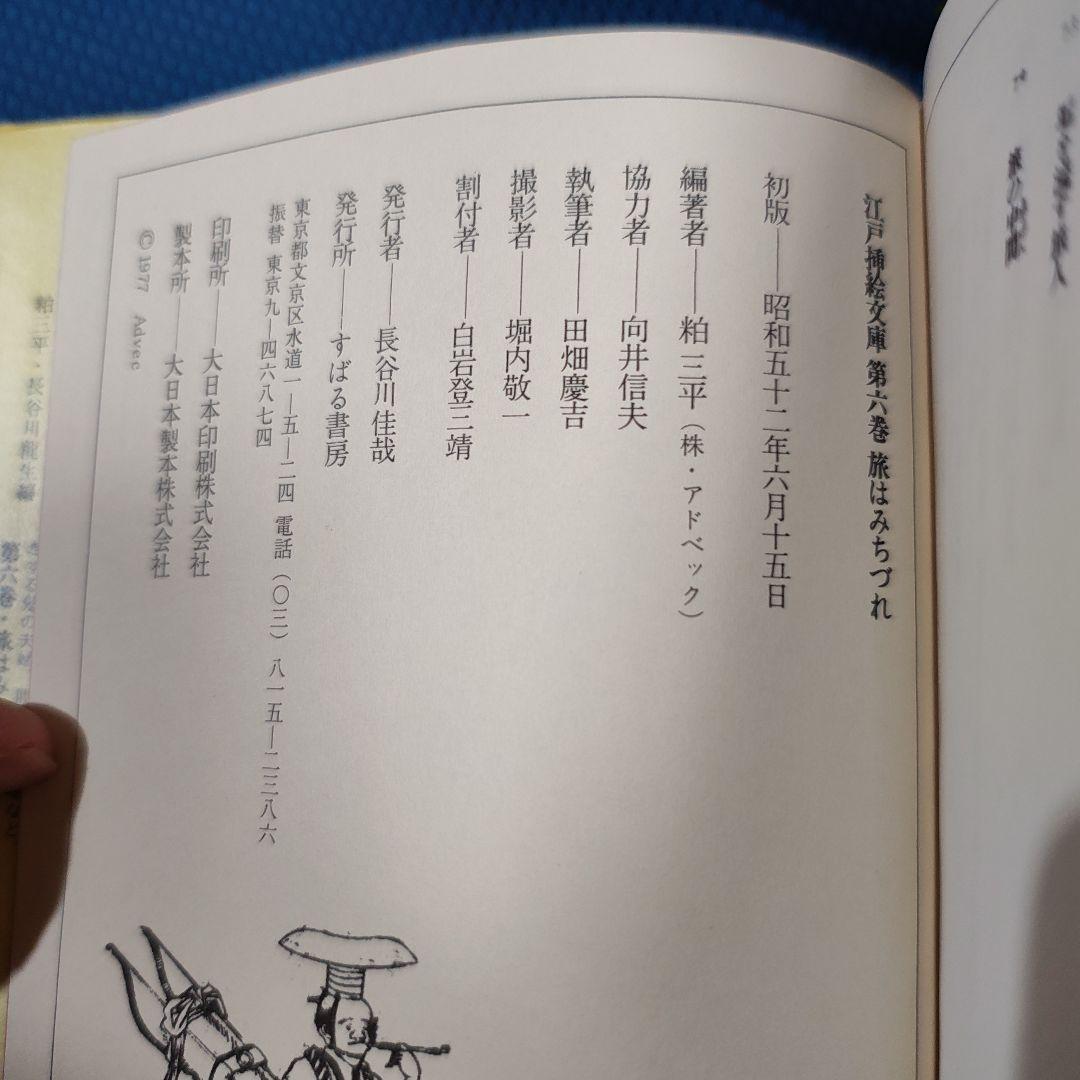 江戸挿絵文庫 第六巻 旅はみちづれ
初版――昭和五十二年六月十五日
編著者――粕 三平（株・アドベック）
協力者――向井信夫
執筆者――田畑慶吉
撮影者――堀内敬一
割付者――白岩登三靖
発行者――長谷川佳哉
発行所――すばる書房
東京都文京区水道一―五―二四 電話（〇三）八一五―二三八六
振替 東京九―四六八七四
印刷所――大日本印刷株式会社
製本所――大日本製本株式会社
© 1977 Advec
粕三平・長谷川龍生編
第六巻・旅はみ